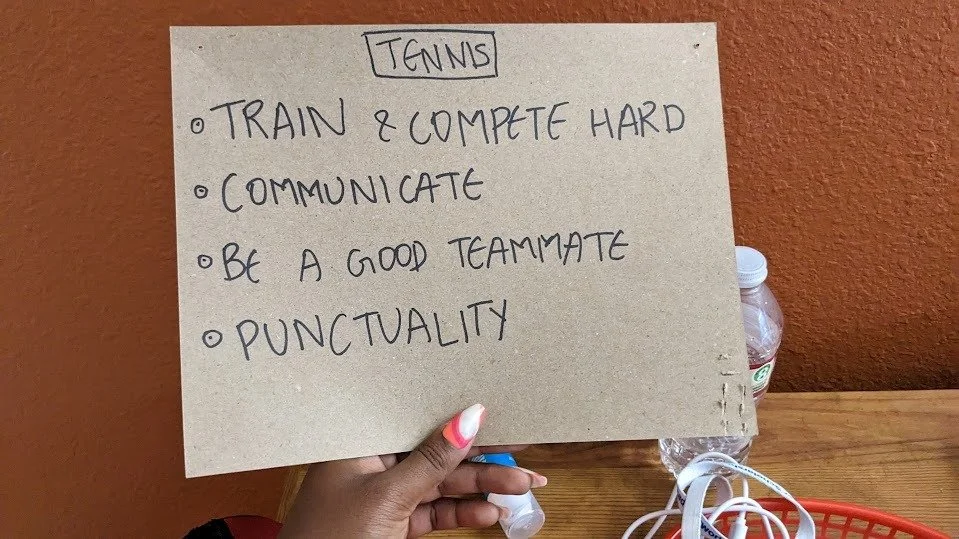 TENNIS
TRAIN & COMPETE HARD
COMMUNICATE
BE A GOOD TEAMMATE
PUNCTUALITY